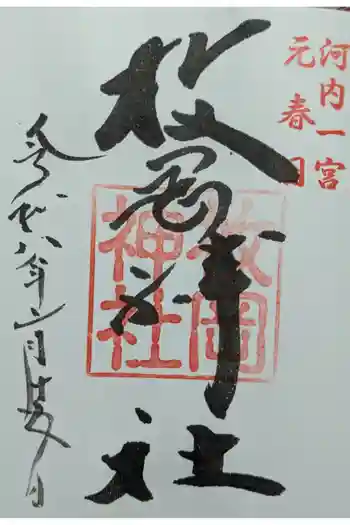 河内一宮
元春日
枚岡神社
枚岡
神社
令和八年二月日